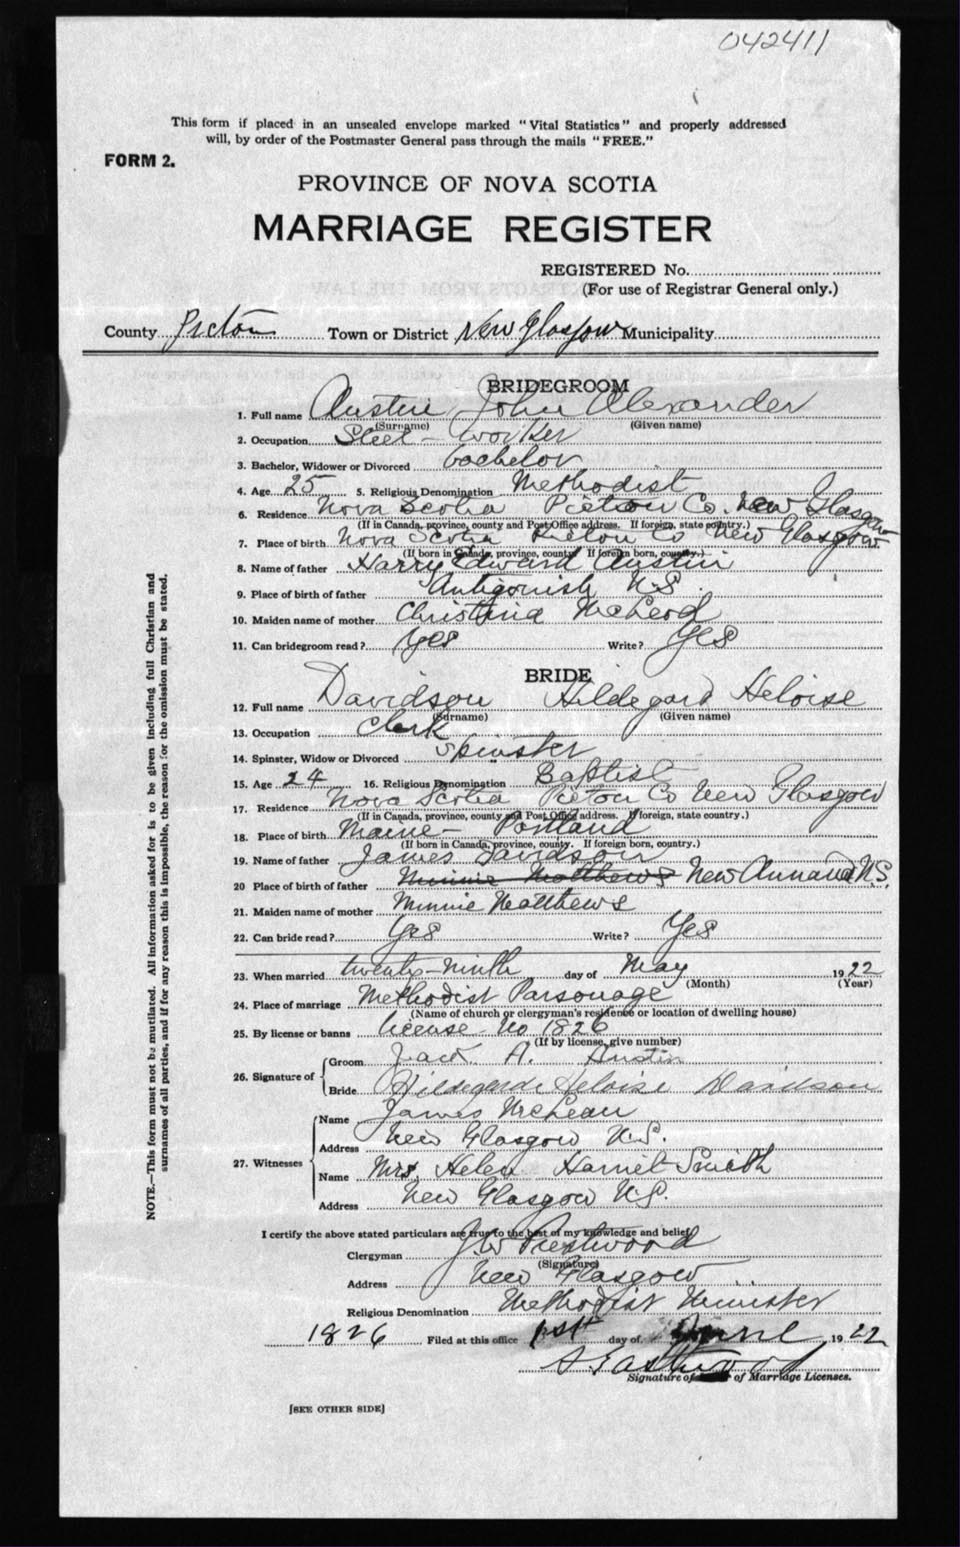 042411
This form if placed in an unsealed envelope marked "Vital Statistics" and properly addressed
will, by order of the Postmaster General pass through the mails "FREE."
FORM 2.
PROVINCE OF NOVA SCOTIA
MARRIAGE REGISTER
REGISTERED No.
(For use of Registrar General only.)
County Pictou Town or District New Glasgow Municipality
BRIDEGROOM
1. Full name Austin John Alexander
(Surname) (Given name)
2. Occupation Steel-worker
3. Bachelor, Widower or Divorced bachelor
4. Age 25 5. Religious Denomination Methodist
6. Residence Nova Scotia Pictou Co. New Glasgow
(If in Canada, province, county and Post Office address. If foreign, state country.)
7. Place of birth Nova Scotia Pictou Co New Glasgow
(If born in Canada, province, county. If foreign born, country.)
8. Name of father Harry Edward Austin
9. Place of birth of father Antigonish N.S.
10. Maiden name of mother Christina McLeod
11. Can bridegroom read? Yes Write? Yes
BRIDE
12. Full name Davidson Hildegard Heloise
(Surname) (Given name)
13. Occupation Clerk
14. Spinster, Widow or Divorced Spinster
15. Age 24 16. Religious Denomination Baptist
17. Residence Nova Scotia Pictou Co New Glasgow
(If in Canada, province, county and Post Office address. If foreign, state country.)
18. Place of birth Maine - Portland
(If born in Canada, province, county. If foreign born, country.)
19. Name of father James Davidson
20 Place of birth of father Minnie Matthews New Annand N.S.
21. Maiden name of mother Minnie Matthews
22. Can bride read? Yes Write? Yes
23. When married twenty-ninth day of May 1922
(Month) (Year)
24. Place of marriage Methodist Parsonage
(Name of church or clergyman's residence or location of dwelling house)
25. By license or banns license - No 1826
(If by license, give number)
26. Signature of Groom Jack A. Austin
Bride Hildegarde Heloise Davidson
27. Witnesses Name James McLean
Address New Glasgow N.S.
Name Mrs. Helen Harriet Smith
Address New Glasgow N.S.
I certify the above stated particulars are true to the best of my knowledge and belief.
Clergyman J W Prestwood
(Signature)
Address New Glasgow
Religious Denomination Methodist Minister
1826 Filed at this office 1st day of June 1922
Eastwood
Signature of of Marriage Licenses.
[SEE OTHER SIDE]
NOTE.—This form must not be mutilated. All information asked for is to be given including full Christian and
surnames of all parties, and if for any reason this is impossible, the reason for the omission must be stated.